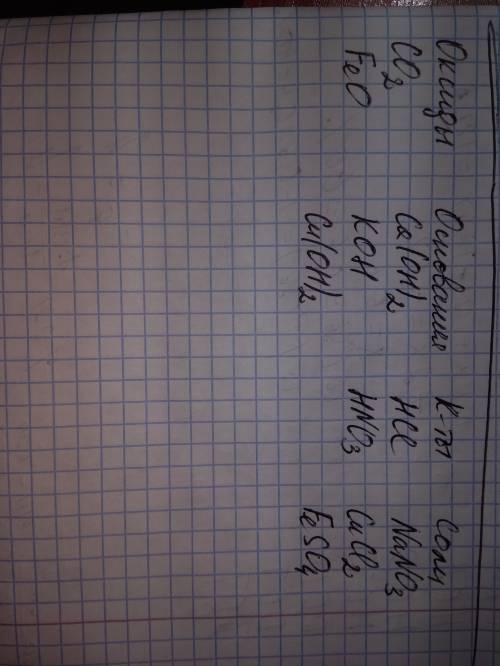 Оксиды Основания К-ты Соли
CO2 Ca(OH)2 HCl NaNO3
FeO KOH HNO3 CuCl2
Cu(OH)2 FeSO4